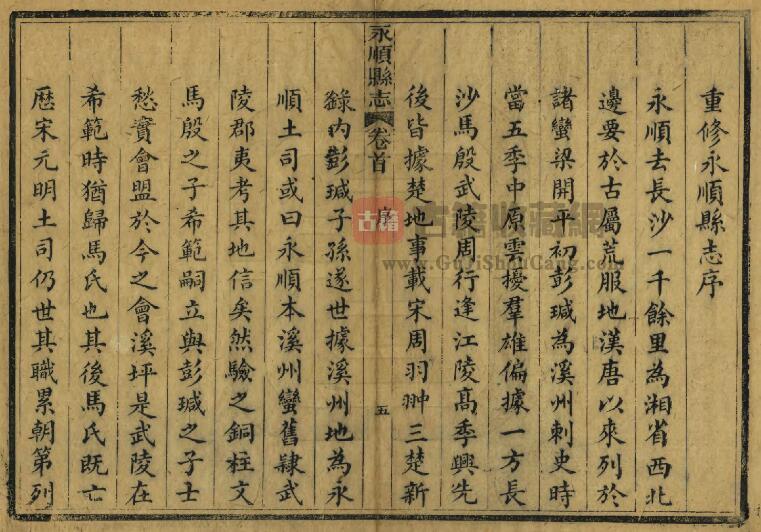 重修永順縣志序
永順去長沙一千餘里為湘省西北
邊要於古屬荒服地漢唐以來列於
諸蠻梁開平初彭瑊為溪州刺史時
當五季中原雲擾羣雄偏據一方長
沙馬殷武陵周行逢江陵高季興先
後皆據楚地事載宋周羽翀三楚新
永順縣志 卷首 序 五
錄內彭瑊子孫遂世據溪州地為永
順土司或曰永順本溪州蠻舊隸武
陵郡夷考其地信矣然驗之銅柱文
馬殷之子希範嗣立與彭瑊之子士
愁實會盟於今之會溪坪是武陵在
希範時猶歸馬氏也其後馬氏既亡
歷宋元明土司仍世其職累朝第列
古籍
古籍收藏網
www.GujiShouCang.com